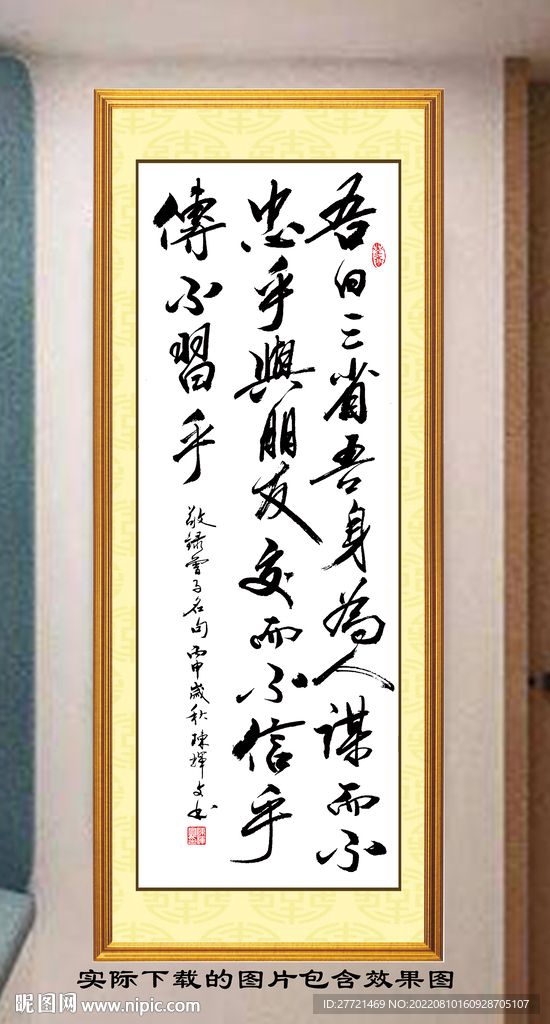 吾日三省吾身為人謀而不
忠乎與朋友交而不信乎
傳不習乎
敬録曾子名句丙申歲秋陳輝文書
实际下载的图片包含效果图
昵图网 www.nipic.com
ID:27721469 NO:20220810160928705107